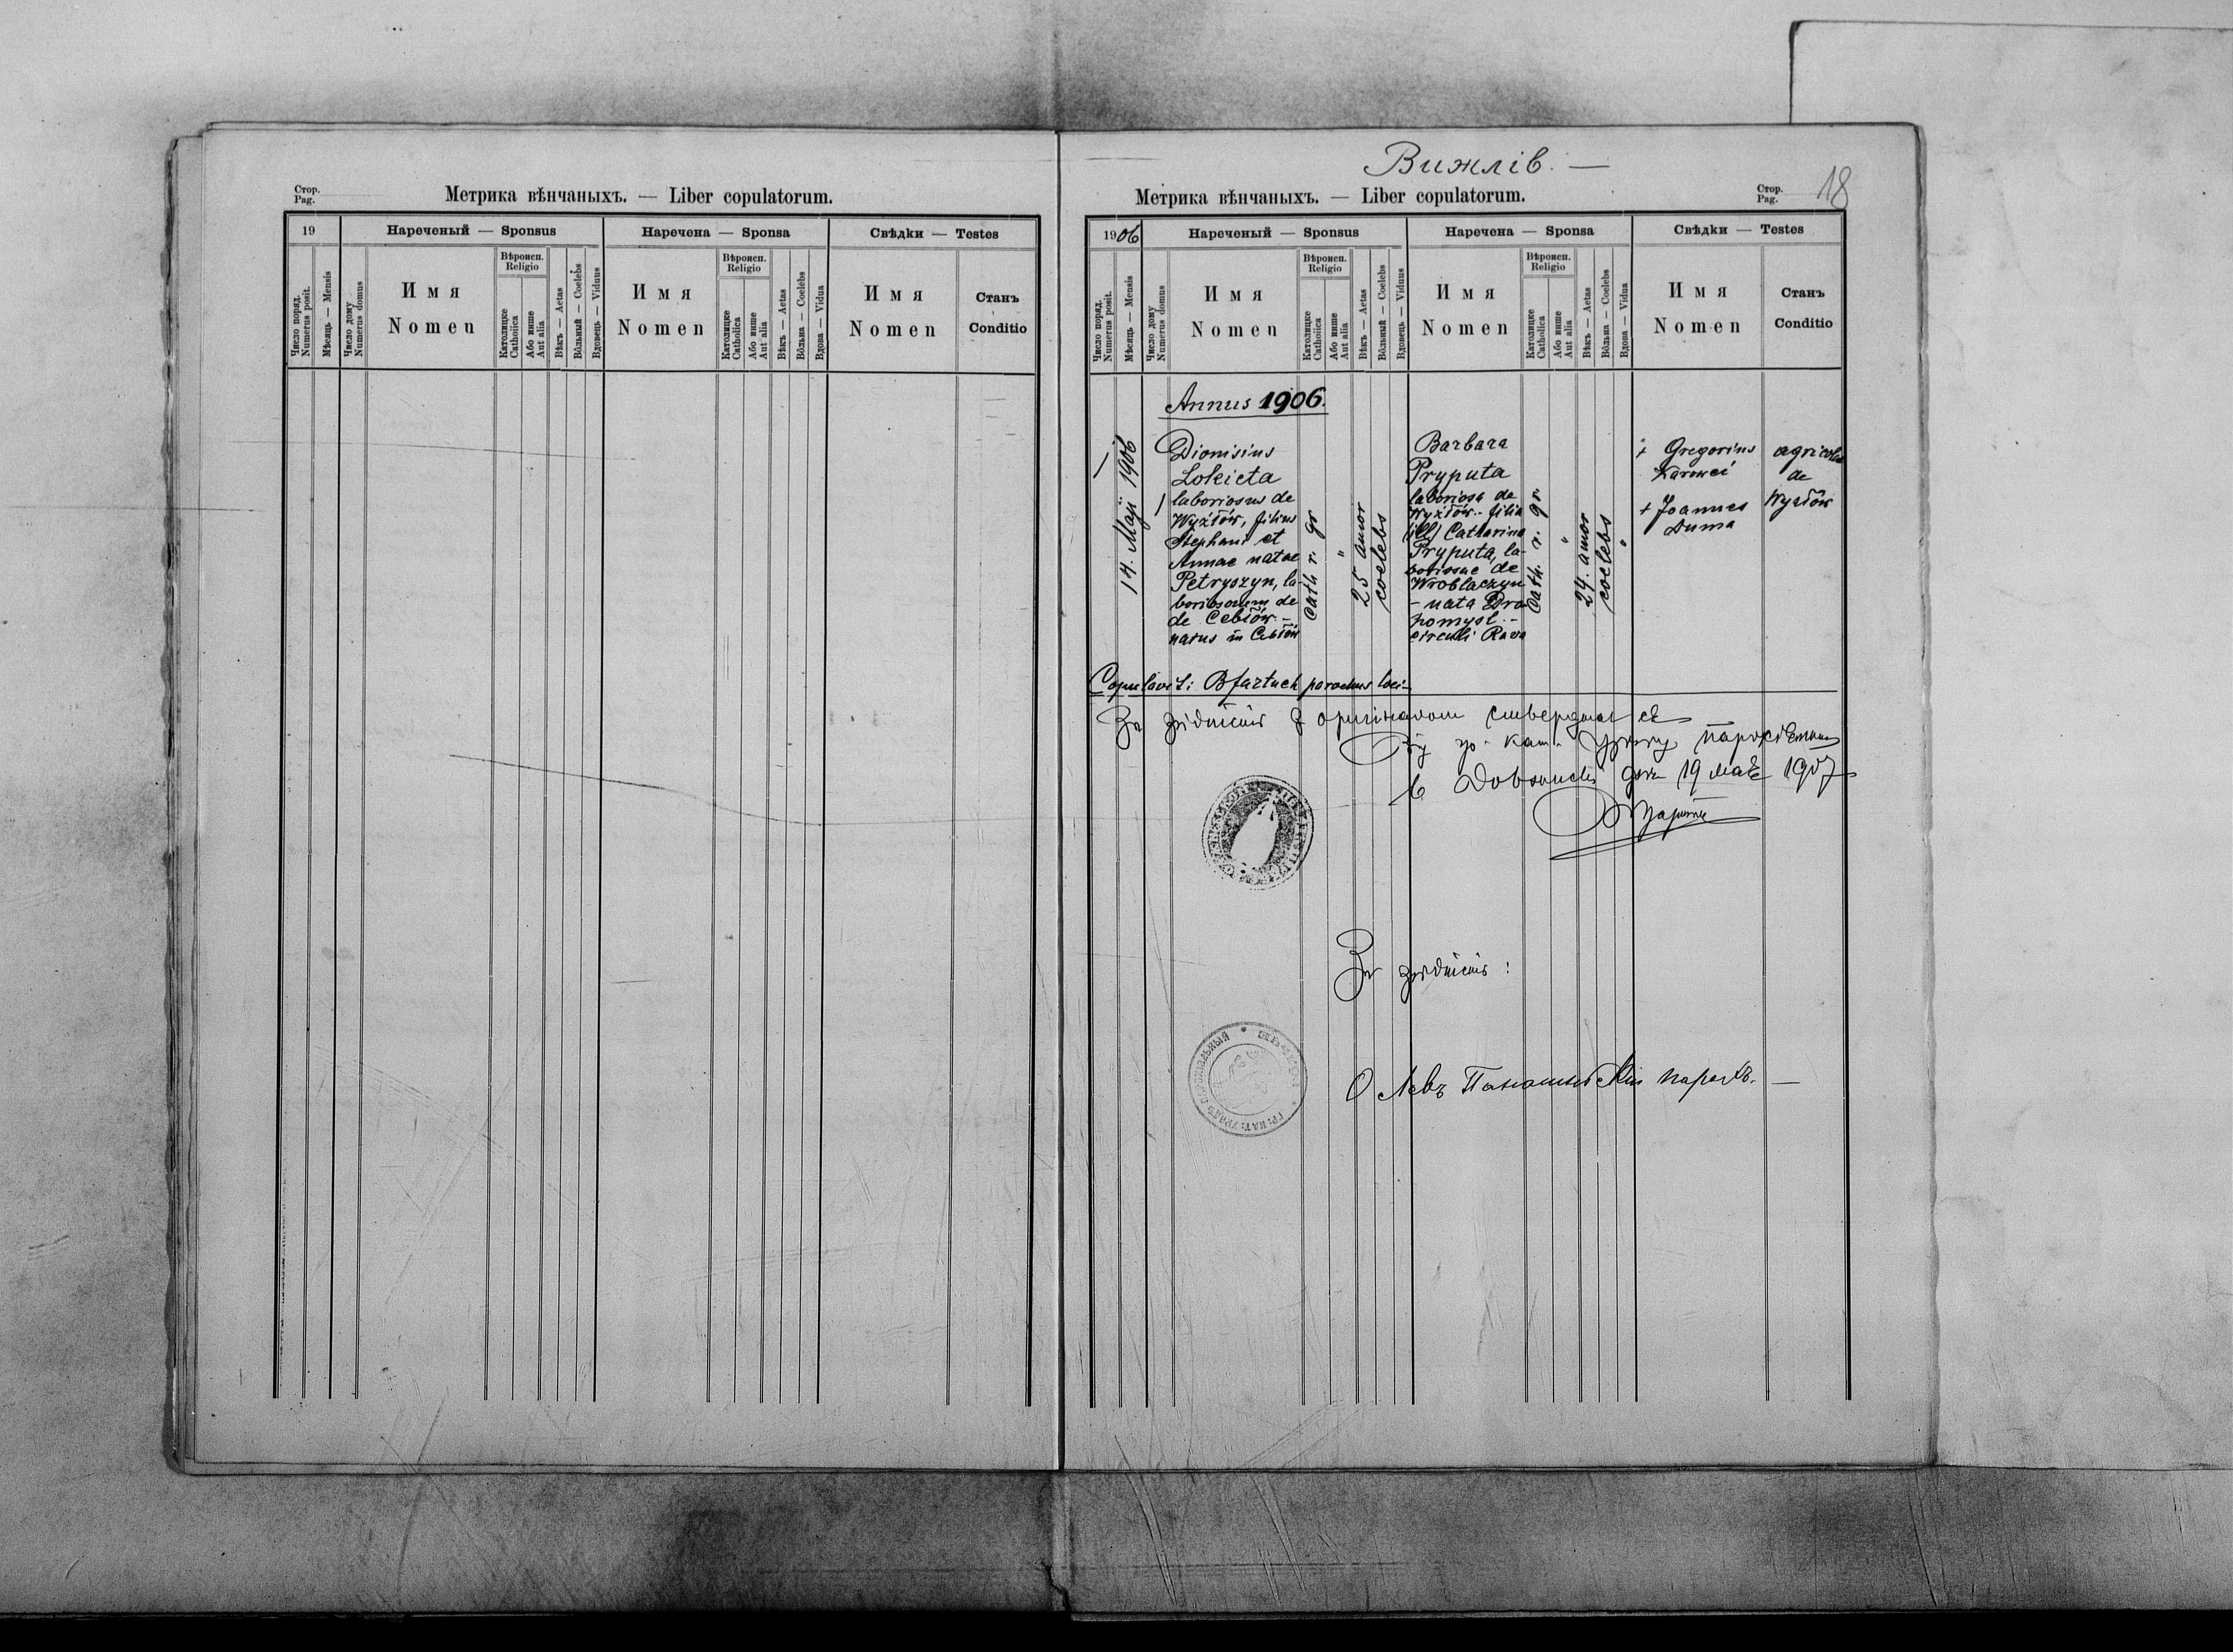 Стор.
Pag.
Метрика вѣнчаныхъ. — Liber copulatorum.
19
Нареченый — Sponsus
Наречена — Sponsa
Свѣдки — Testes
Число поряд.
Numerus posit.
Мѣсяць — Mensis
Число дому
Numerus domus
Имя
Nomen
Вѣроисп.
Religio
Католицке
Catholica
Або инше
Aut alia
Вѣкъ — Aetas
Вôльный — Coelebs
Вдовець — Viduus
Имя
Nomen
Вѣроисп.
Religio
Католицке
Catholica
Або инше
Aut alia
Вѣкъ — Aetas
Вôльна — Coelebs
Вдова — Vidua
Имя
Nomen
Станъ
Conditio
Вижлів. —
Метрика вѣнчаныхъ. — Liber copulatorum.
Стор.
Pag.
18
1906
Нареченый — Sponsus
Наречена — Sponsa
Свѣдки — Testes
Число поряд.
Numerus posit.
Мѣсяць — Mensis
Число дому
Numerus domus
Имя
Nomen
Вѣроисп.
Religio
Католицке
Catholica
Або инше
Aut alia
Вѣкъ — Aetas
Вôльный — Coelebs
Вдовець — Viduus
Имя
Nomen
Вѣроисп.
Religio
Католицке
Catholica
Або инше
Aut alia
Вѣкъ — Aetas
Вôльна — Coelebs
Вдова — Vidua
Имя
Nomen
Станъ
Conditio
Annus 1906.
14. Maji 1906
Dionisius
Lokieta
laboriosus de
Wyżłów, filius
Stephani et
Annae natae
Petryszyn, la-
boriosorum de
de Cebłów. -
natus in Cebłów
Cath r. gr
"
25 annor
coelebs
Barbara
Pryputa
laboriosa de
Wyżłów. - filia
(ill) Catharina
Pryputa, la-
boriosae de
Wroblaczyn
- nata Dra-
homysl. -
circuli Rava
Cath. r. gr.
"
24. annor
coelebs
"
+ Gregorius
+ Joannes
Duma
agricolae
de
Wyżłów
Copulavit: B fartuch parochus loci -
За згідність з оригіналом стверджає ся
Від гр. кат. Уряду парохіяльного
19 мая 1907
За згідність:
О Левъ парохъ. —